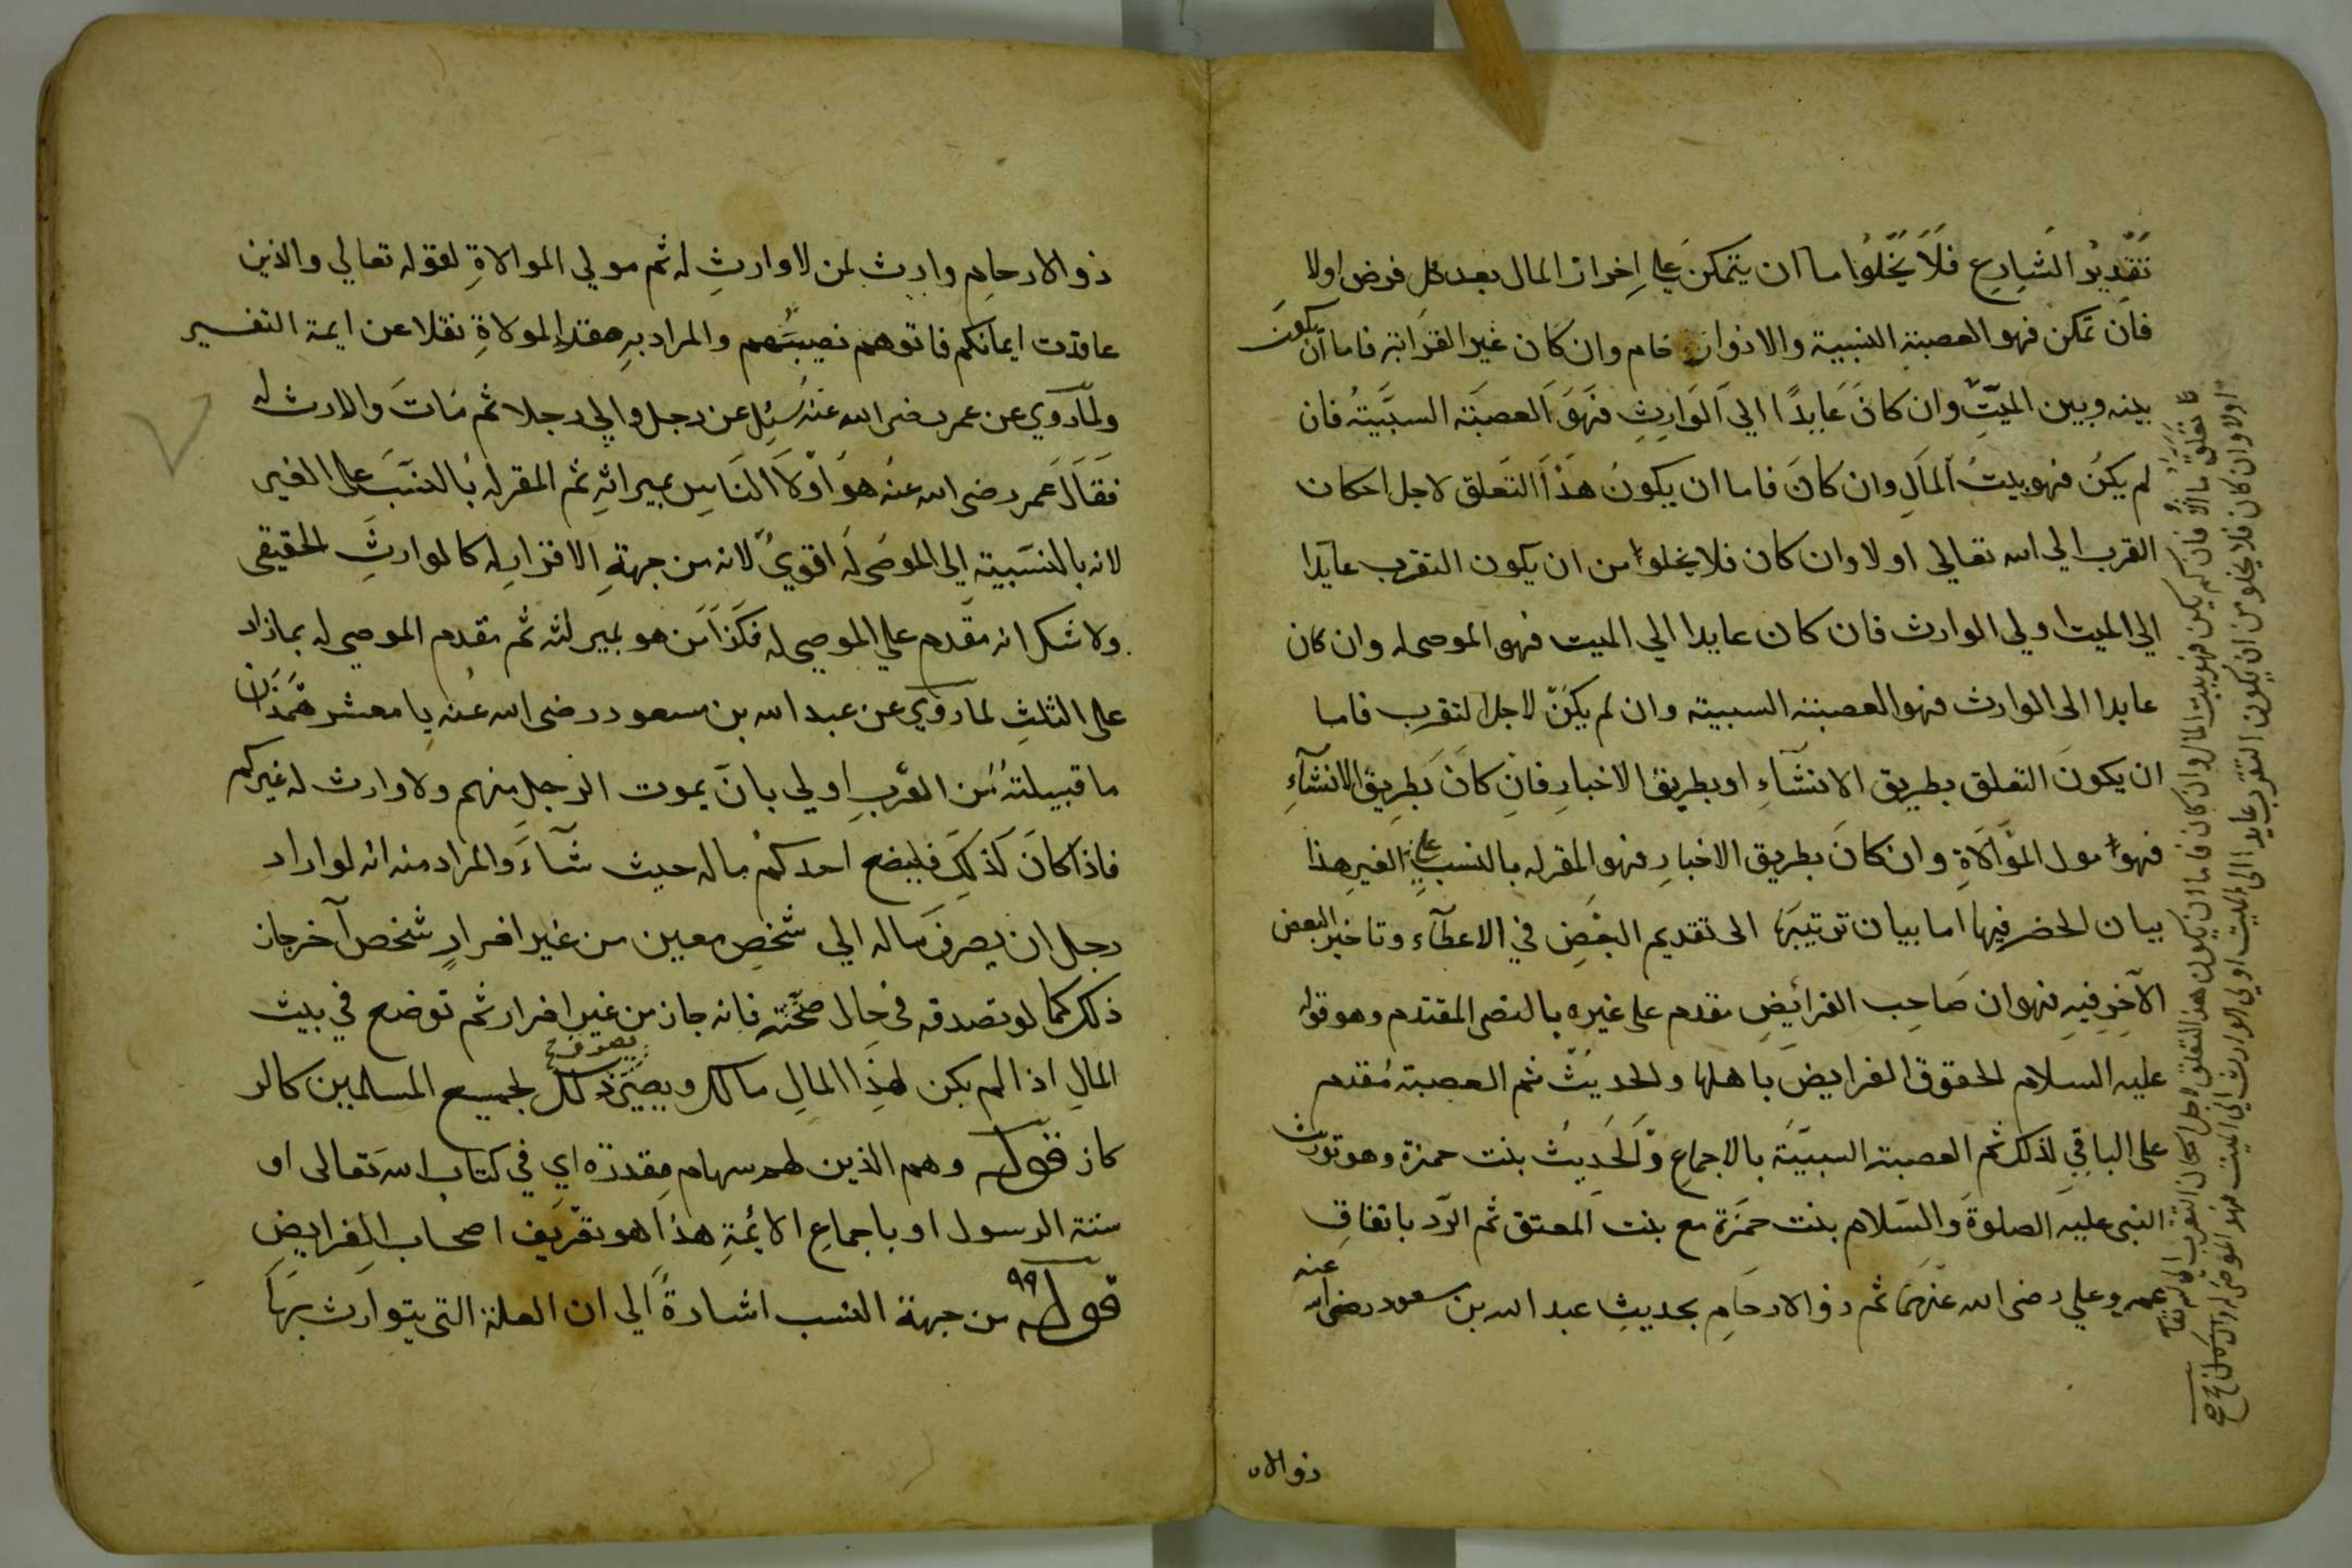 تقدير الشارع فلا يخلوا ما ان يتمكن علي اخراز المال بعد كل فرض اولا
فان تمكن فهو العصبة النسبية والا ذوا رخام وان كان غير القرابة فاما ان يكون
بينه وبين الميت وان كان عايدًا الي الوارث فهو العصبة السببية فان
لم يكن فهو بيت المال وان كان فاما ان يكون هذا التعلق لاجل احكان
القرب الي الله تعالي اولا وان كان فلا يخلوا من ان يكون التقرب عايدا
الي الميت او لي الوارث فان كان عايدا الي الميت فهو الموصى له وان كان
عايدا الى الوارث فهو العصبته السببية وان لم يكن لاجل التقرب فاما
ان يكون التعلق بطريق الانشآء او بطريق الاخبار فان كان بطريق الانشآء
فهوا مول الموالاة وان كان بطريق الاخبار فهو المقر له بالنسب علي الغير هذا
بيان الحضر فيها اما بيان ترتيبها الى تقديم البعض في الاعطآء وتاخير البعض
الآخر فيه فهو ان صاحب الفرائض مقدم على غيره بالنص المقتدم وهو قوله
عليه السلام الحقوق الفرايض باهلها والحديث ثم العصبة مقدم
على الباقي لذلك ثم العصبة السببية بالاجماع والحديث بنت حمزة وهو تورث
النبي عليه الصلوة والسلام بنت حمزة مع بنت المعتق ثم الرد باتفاق
عمر وعلي رضى الله عنهما ثم ذو الارحام بحديث عبد الله بن سعود رضى الله عنه
ذو الا
ما تعلق ما اولا فان لم يكن فهو بيت المال وان كان فاما ان يكون هذا التعلق لاجل احكان التقرب الي الله تعا
اولا وان كان فلا يخلو من ان يكون التقرب عايدا الى الميت او لي الوارث الي الميت فهو الموصى له وان كان صح
ذو الارحام وارث لمن لا وارث له ثم مولي الموالاة لقوله تعالي والذين
عاقدت ايمانكم فاتوهم نصيبهم والمراد به عقد المولاة نقلا عن ايمة التفسير
ولما روي عن عمر رضى الله عنه سئل عن رجل والي رجلا ثم مات والارث له
فقال عمر رضى الله عنه هو اولا الناس بميراثه ثم المقر له بالنسب على الغير
لانه بالنسبية الي الموصى له اقوي لانه من جهة الاقرار له كالوارث الحقيقى
ولا شك انه مقدم علي الموصى له فكذا من هو بميرلته ثم مقدم الموصى له بمازاد
على الثلث لما روي عن عبد الله بن سعود رضى الله عنه يا معشر همذان
ما قبيلته من العرب اولي بان يموت الرجل منهم ولا وارث له غيركم
فاذا كان كذلك فليضع احدكم ماله حيث شآء والمراد منه انه لو اراد
رجل ان يصرف ماله الي شخص معين من غير اقرار شخص آخر جاز
ذلك كما لو تصدقه في حال صحته فانه جاز من غير اقرار ثم توضع في بيت
المال اذا لم يكن لهذا المال مالك ويصير ذلك لجميع المسلمين كالر
كاز قوله وهم الذين لهم سهام مقدرة اي في كتاب الله تعالى او
سنة الرسول او باجماع الائمة هذا هو تقريف اصحاب الفرايض
قوله ٩٩ من جهة النسب اشارة الي ان العلة التى يتوارث بها